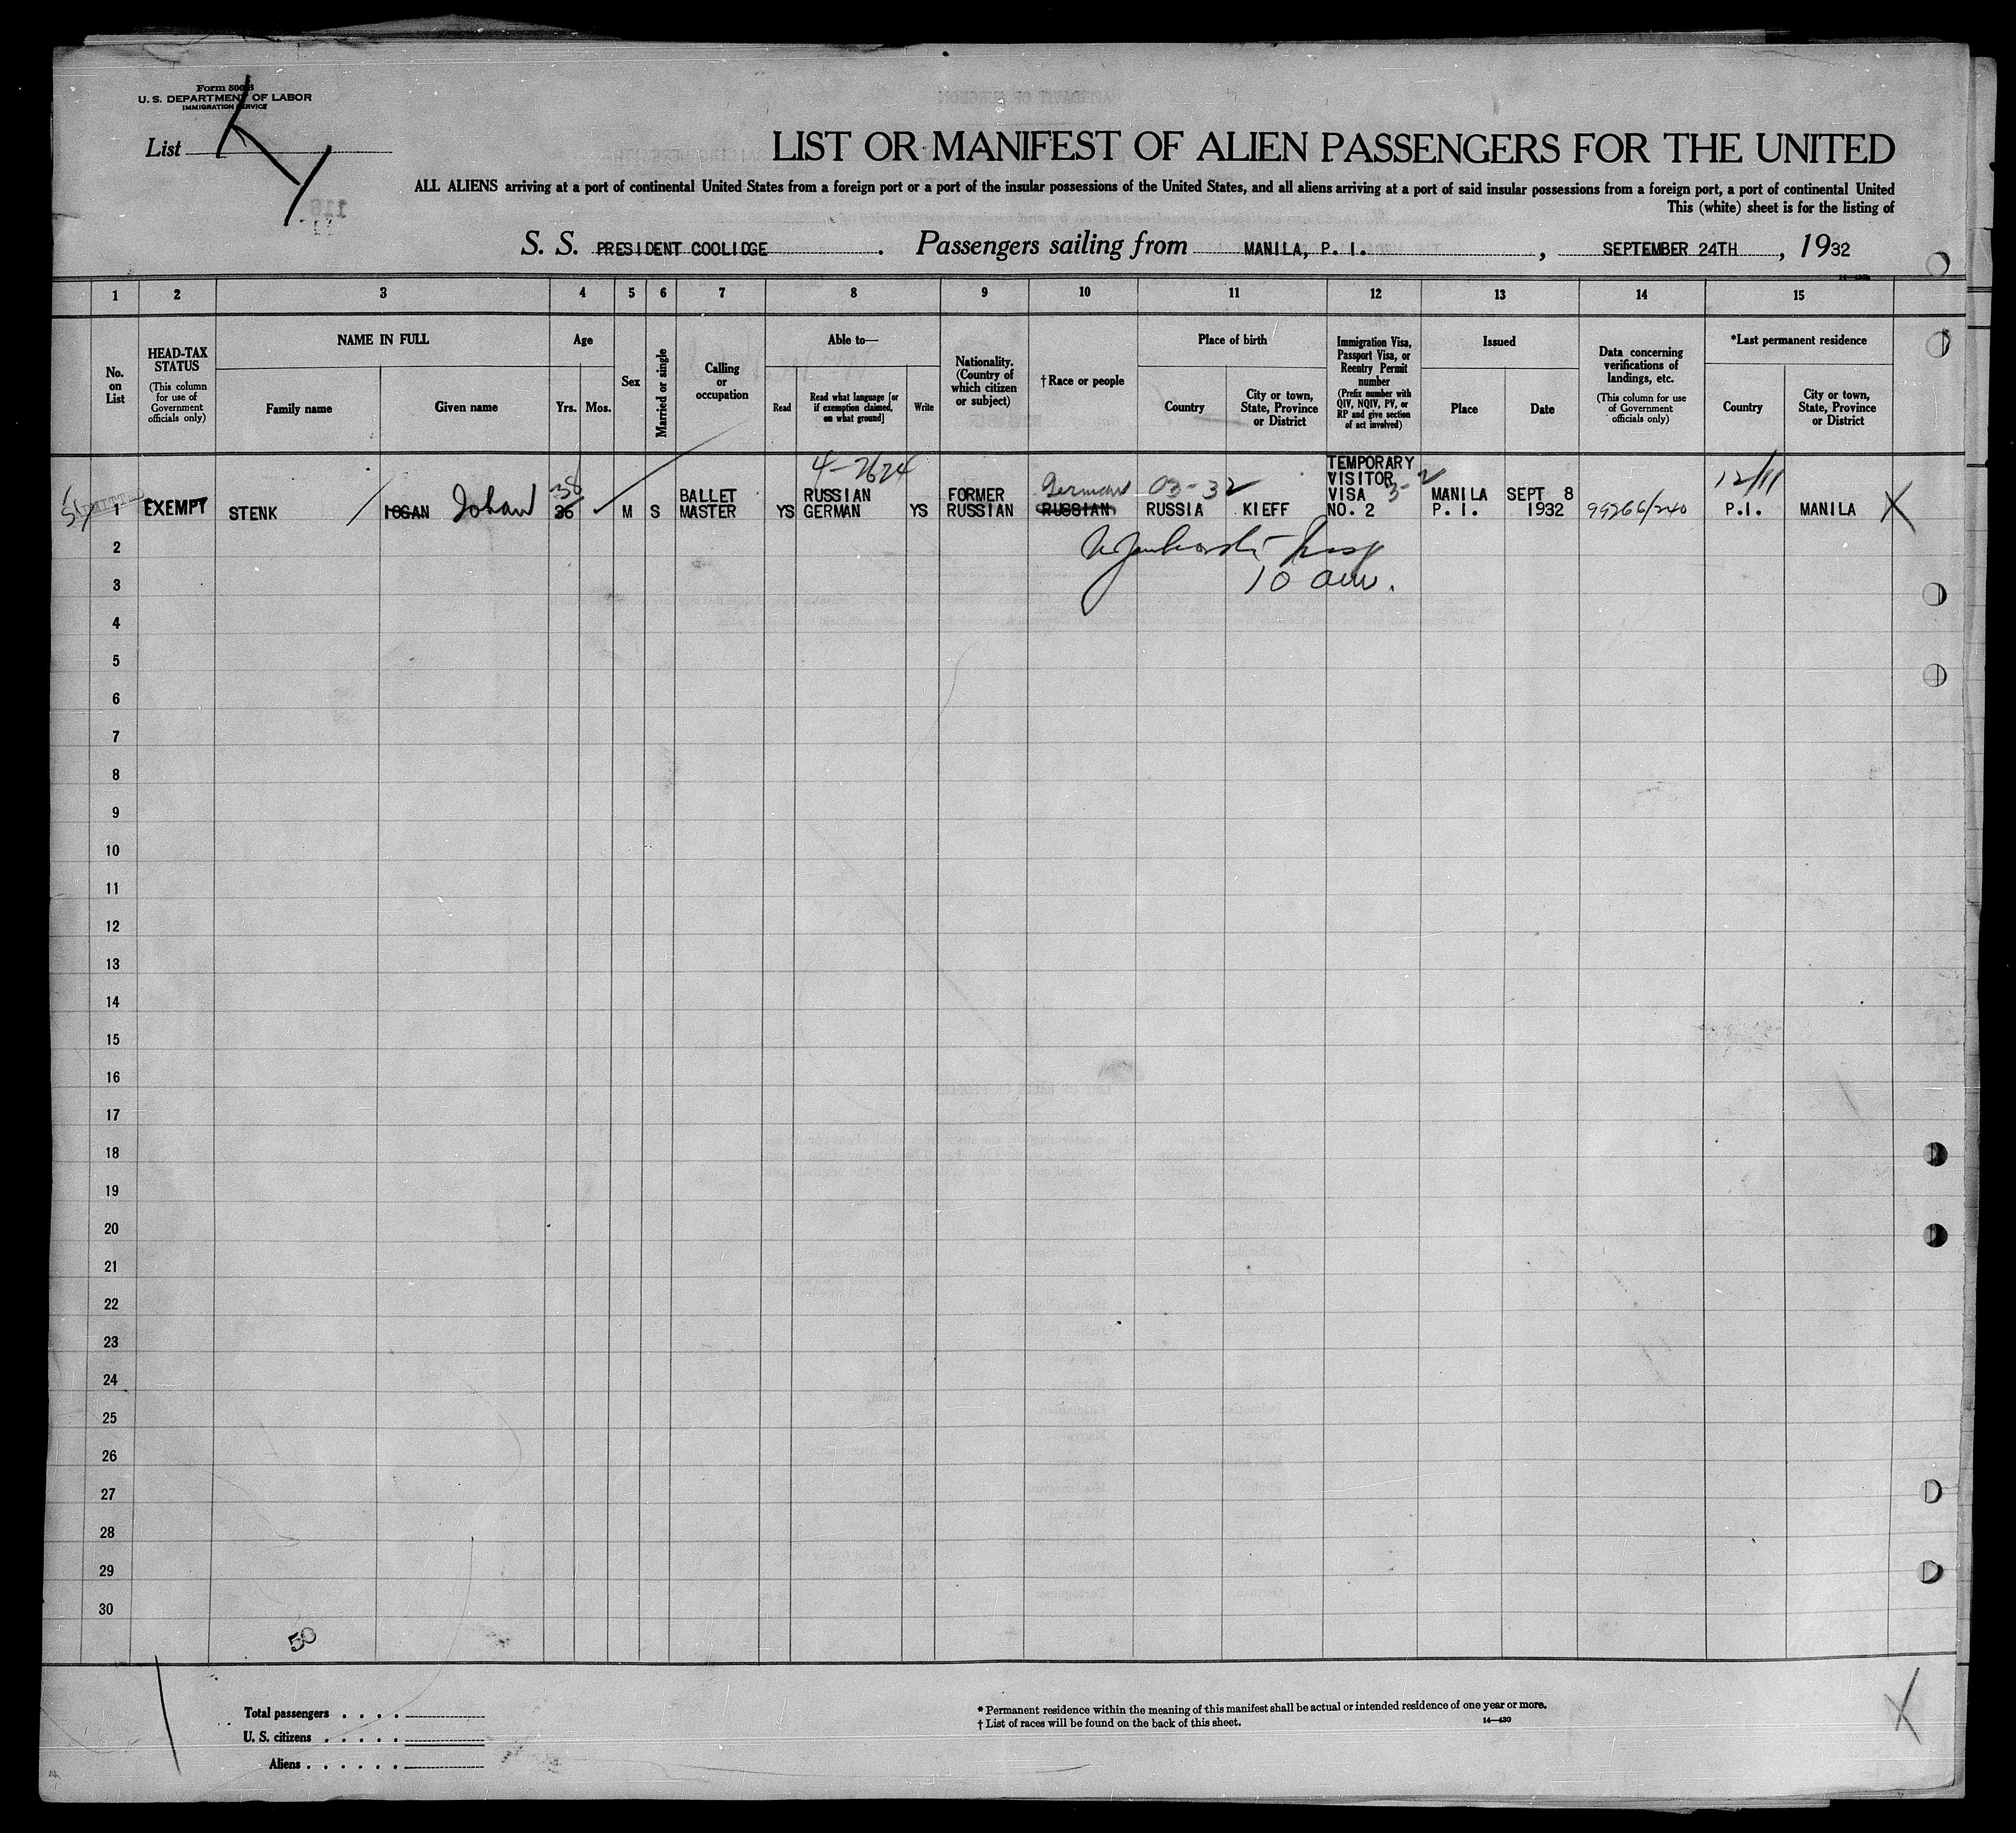 Form 500 B
U. S. DEPARTMENT OF LABOR
IMMIGRATION SERVICE
List
LIST OR MANIFEST OF ALIEN PASSENGERS FOR THE UNITED
ALL ALIENS arriving at a port of continental United States from a foreign port or a port of the insular possessions of the United States, and all aliens arriving at a port of said insular possessions from a foreign port, a port of continental United
This (white) sheet is for the listing of
S. S. PRESIDENT COOLIDGE. Passengers sailing from MANILA, P. I., SEPTEMBER 24TH, 1932
1 2 3 4 5 6 7 8 9 10 11 12 13 14 15
No. on List
HEAD-TAX STATUS (This column for use of Government officials only)
NAME IN FULL
Family name
Given name
Age
Yrs. Mos.
Sex
Married or single
Calling or occupation
Able to—
Read
Read what language [or if exemption claimed, on what ground]
Write
Nationality. (Country of which citizen or subject)
†Race or people
Place of birth
Country
City or town, State, Province or District
Immigration Visa, Passport Visa, or Reentry Permit number (Prefix number with QIV, NQIV, PV, or RP and give section of act involved)
Issued
Place
Date
Data concerning verifications of landings, etc. (This column for use of Government officials only)
*Last permanent residence
Country
City or town, State, Province or District
4-2624
German 03-32
3-2
12/11
1 EXEMPT STENK IOGAN Johan 38 36 M S BALLET MASTER YS RUSSIAN GERMAN YS FORMER RUSSIAN RUSSIAN RUSSIA KIEFF TEMPORARY VISITOR VISA NO. 2 MANILA P. I. SEPT 8 1932 99266/240 P.I. MANILA X
2
3
4
5
6
7
8
9
10
11
12
13
14
15
16
17
18
19
20
21
22
23
24
25
26
27
28
29
30
50
Total passengers . . . .
U. S. citizens . . . . .
Aliens . . . . . .
* Permanent residence within the meaning of this manifest shall be actual or intended residence of one year or more.
† List of races will be found on the back of this sheet.
14—430
X